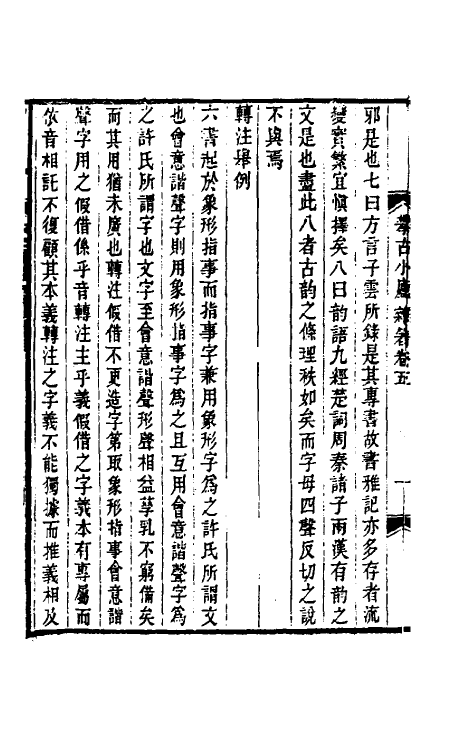 學古小廬雜著卷五
一
邪是也七曰方言子雲所錄是其專書故書雅記亦多存者流
變實繁宜愼擇矣八曰韵語九經楚詞周秦諸子兩漢有韵之
文是也盡此八者古韵之條理秩如矣而字母四聲反切之說
不與焉
轉注舉例
六書起於象形指事而指事字兼用象形字爲之許氏所謂文
也會意諧聲字則用象形指事字爲之且互用會意諧聲字爲
之許氏所謂字也文字至會意諧聲形聲相益孳乳不窮備矣
而其用猶未廣也轉注假借不更造字第取象形指事會意諧
聲字用之假借係乎音轉注主乎義假借之字義本有專屬而
依音相託不復顧其本義轉注之字義不能獨據而推義相及